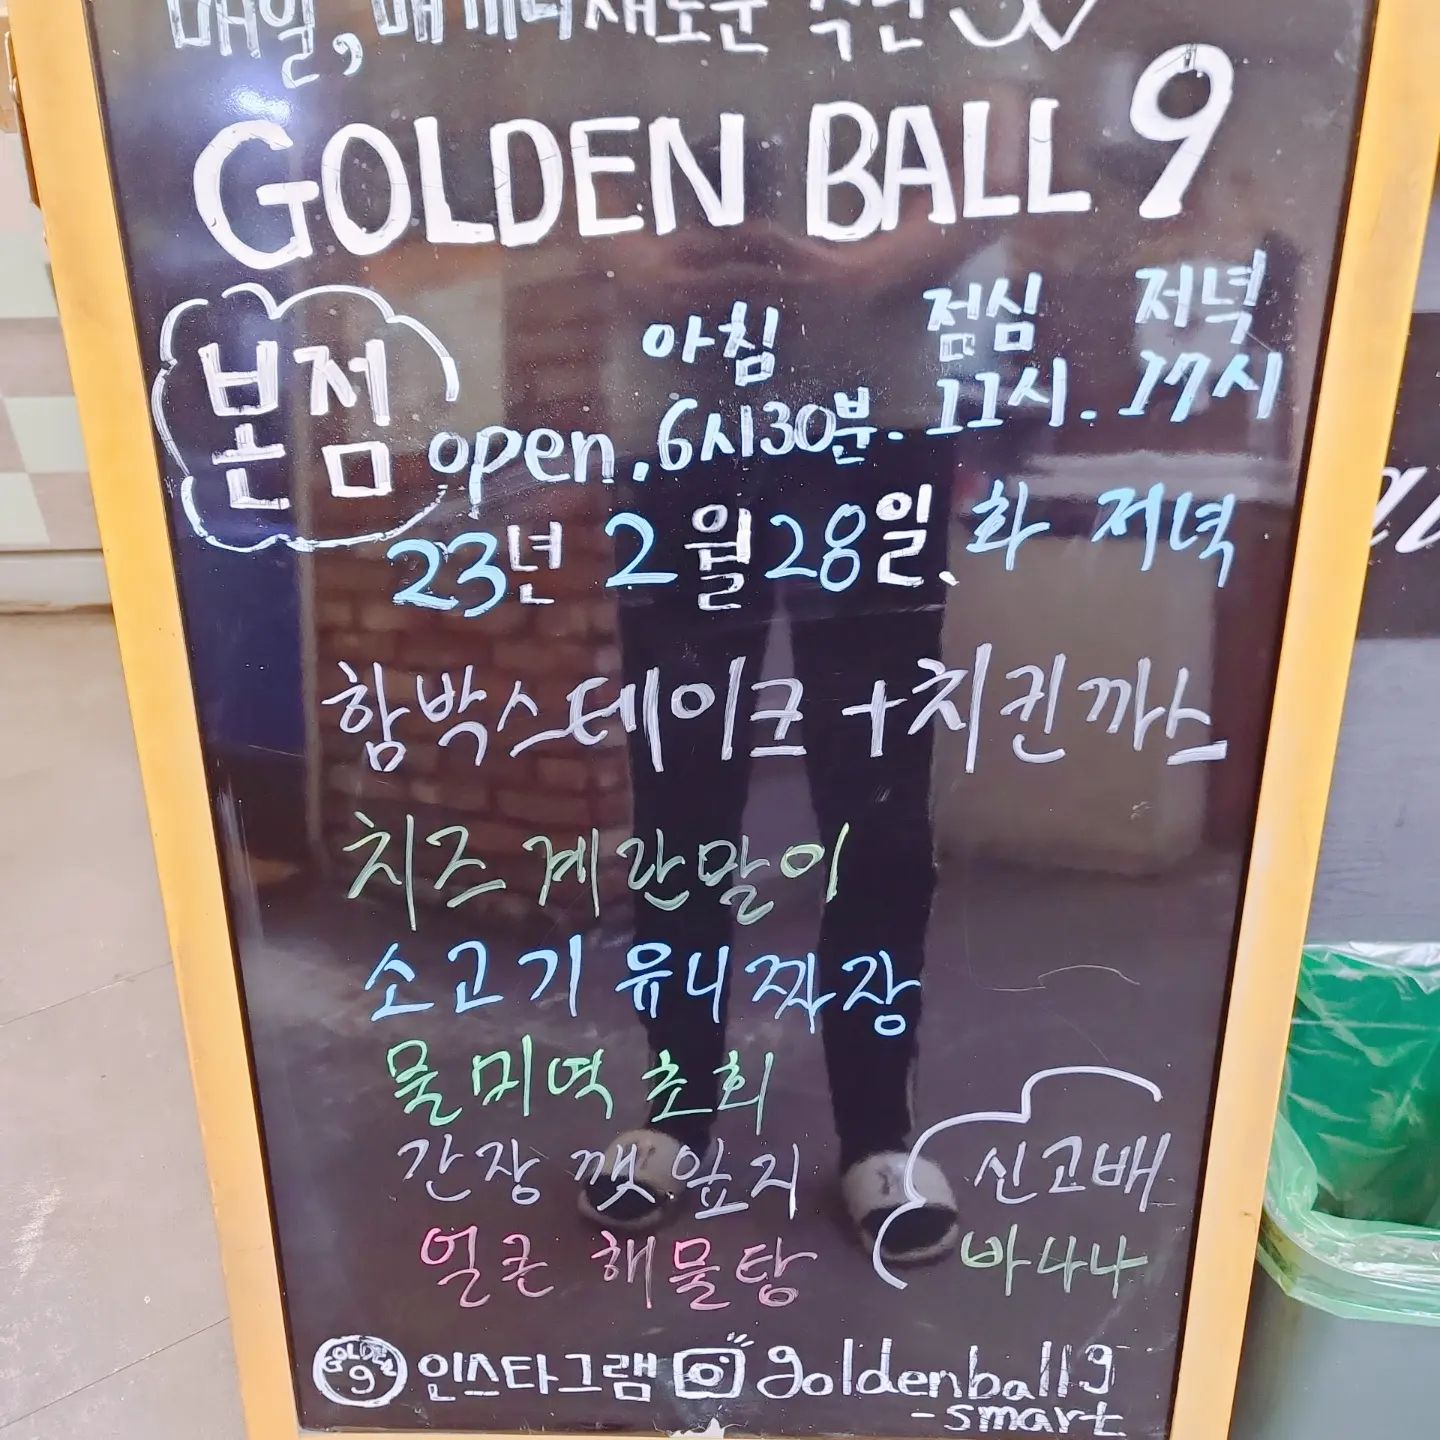 매일, 매끼니 새로운 식단
GOLDEN BALL 9
본점
아침 점심 저녁
open. 6시30분. 11시. 17시
23년 2월 28일. 화 저녁
함박스테이크 + 치킨까스
치즈 계란말이
소고기 유니짜장
물미역 초회
간장 깻잎지
얼큰 해물탕
신고배
바나나
GOLDEN 9 인스타그램 goldenball9
-smart